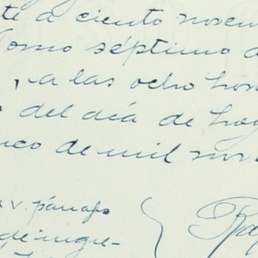 te a ciento noven
Tomo séptimo d
, a las ocho hor
del día de hoy
nco de mil nov
v. párrafo
de ingre-
Ra